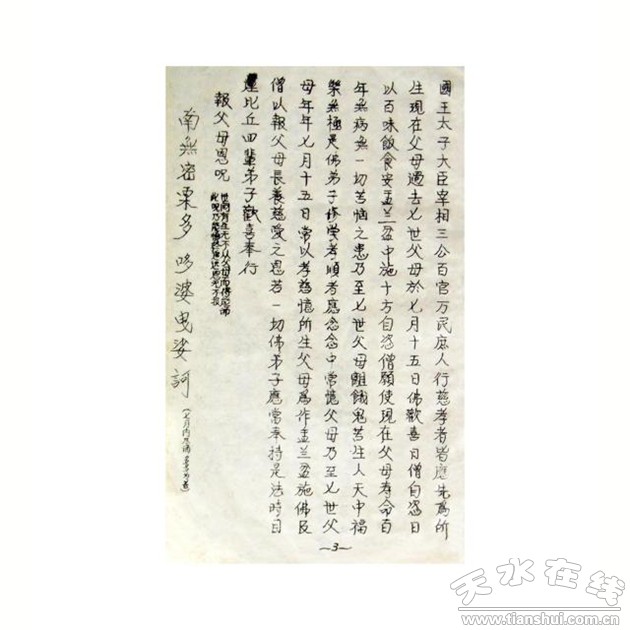 國王太子大臣宰相三公百官万民庶人行慈孝者皆應先爲所
生現在父母過去七世父母於七月十五日佛歡喜日僧自恣日
以百味飯食安盂兰盆中施十方自恣僧願使現在父母寿命百
年無病無一切苦惱之患乃至七世父母離餓鬼苦生人天中福
樂無極是佛弟子修孝順者應念念中常憶父母乃至七世父
母年年七月十五日常以孝慈憶所生父母爲作盂兰盆施佛及
僧以報父母長養慈愛之恩若一切佛弟子應當奉持是法時目
連比丘四輩弟子歡喜奉行
報父母恩呪
南無密栗多 哆婆曳娑訶
~3~
天水在线
www.tianshui.com.cn